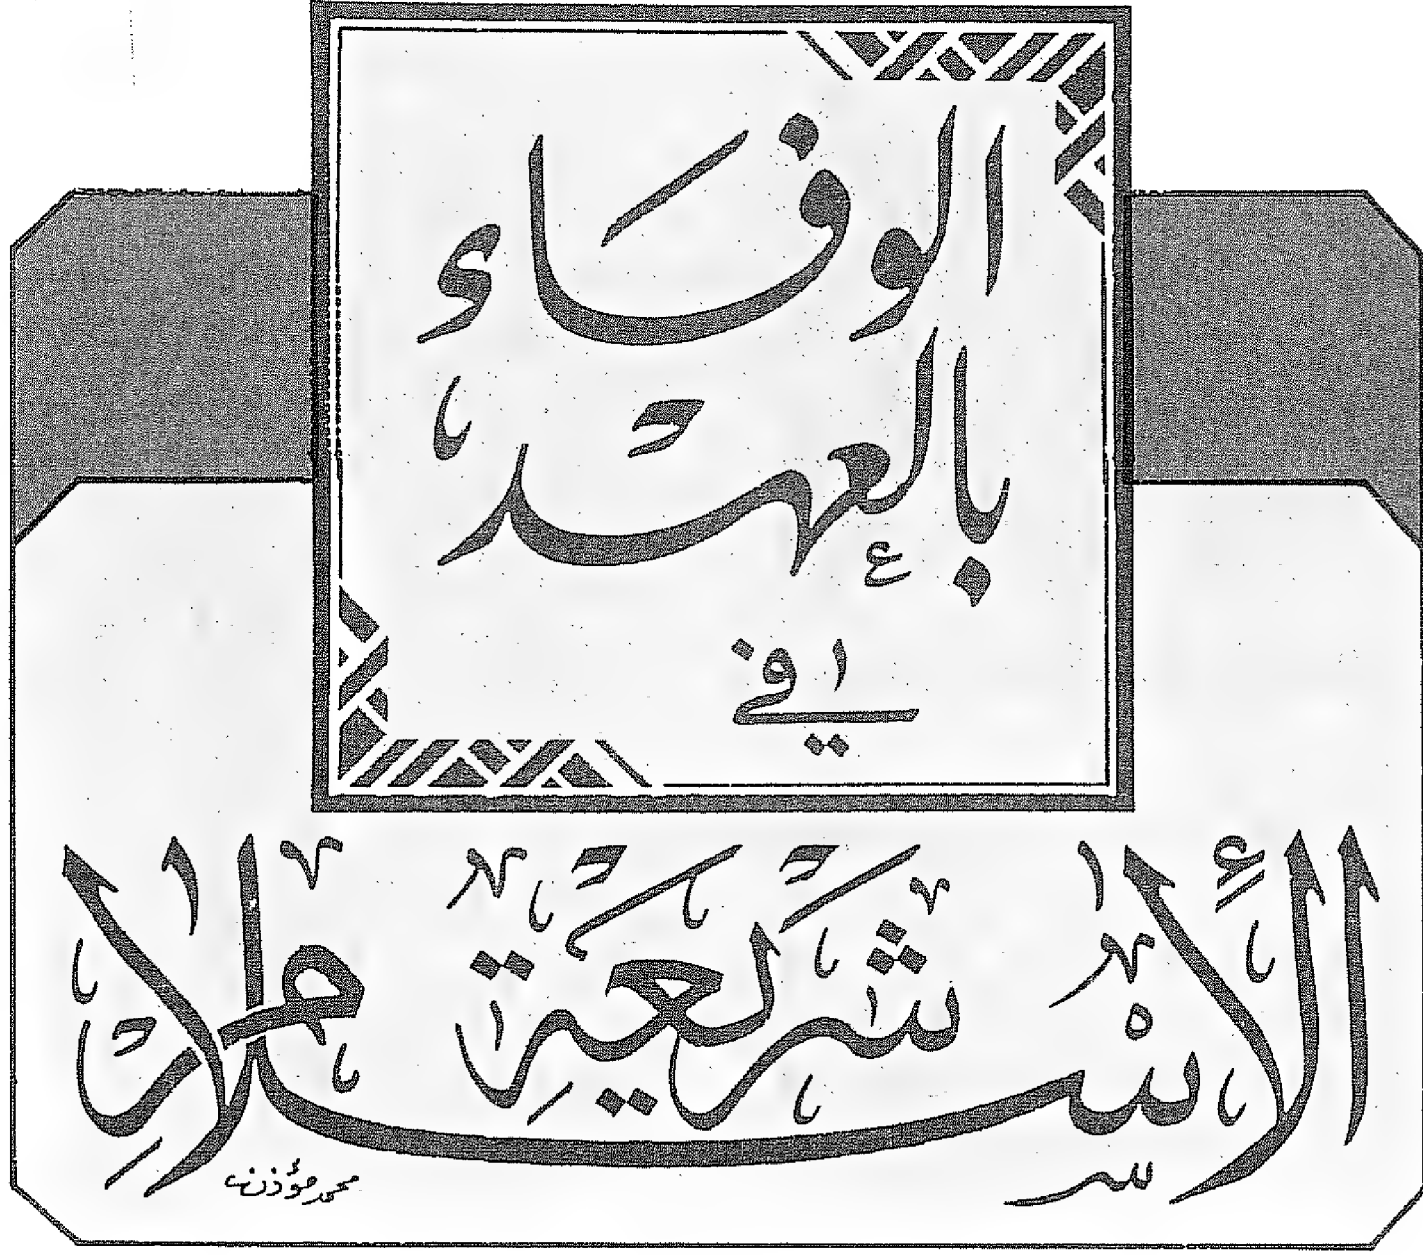 الوفاء
بالعهد
في
شريعة
الإسلام
محمد مؤذن